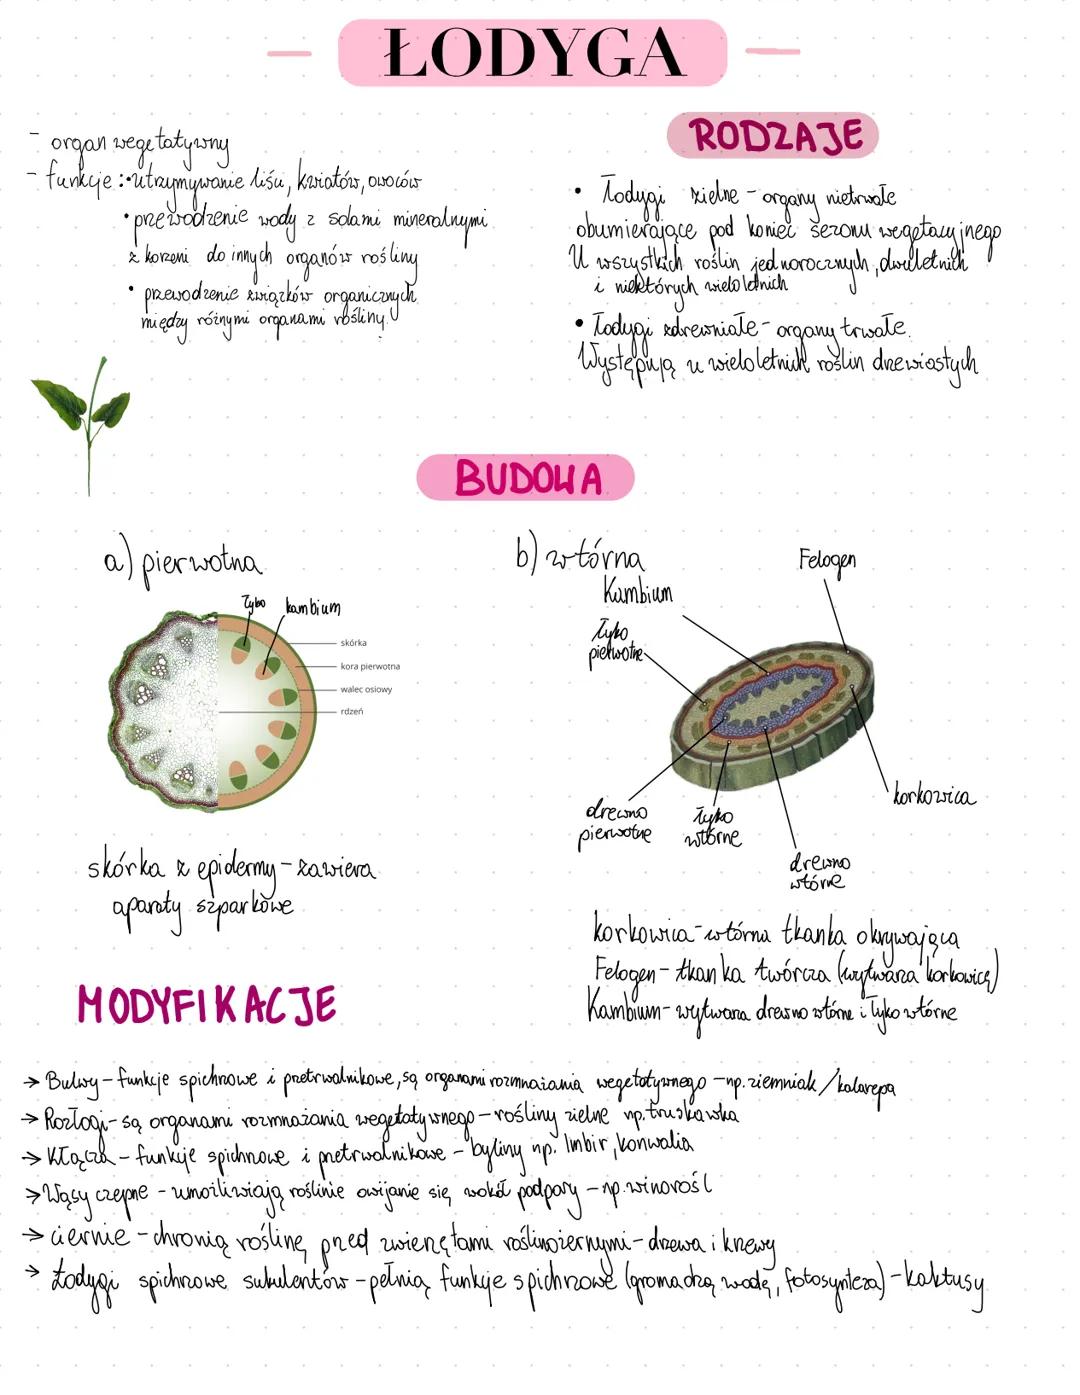 ŁODYGA
- organ wegetatywny
- funkcje: • utrzymywanie liści, kwiatów, owoców
• przewodzenie wody z solami mineralnymi
z korzeni do innych organów rośliny
• przewodzenie związków organicznych
między różnymi organami rośliny.
RODZAJE
• Łodygi zielne - organy nietrwałe
obumierające pod koniec sezonu wegetacyjnego
U wszystkich roślin jednorocznych, dwuletnich
i niektórych wieloletnich
• Łodygi zdrewniałe - organy trwałe.
Występują u wieloletnich roślin drzewiastych
BUDOWA
a) pierwotna
łyko
kambium
skórka
kora pierwotna
walec osiowy
rdzeń
skórka z epidermy - zawiera
aparaty szparkowe
b) wtórna
Kambium
Felogen
łyko
pierwotne
drewno
pierwotne
łyko
wtórne
drewno
wtórne
korkowica
korkowica - wtórna tkanka okrywająca
Felogen - tkanka twórcza (wytwarza korkowicę)
Kambium - wytwarza drewno wtórne i łyko wtórne
MODYFIKACJE
→ Bulwy - funkcje spichrzowe i przetrwalnikowe, są organami rozmnażania wegetatywnego - np. ziemniak / kalarepa
→ Rozłogi - są organami rozmnażania wegetatywnego - rośliny zielne np. truskawka
→ Kłącza - funkcje spichrzowe i przetrwalnikowe - byliny np. Imbir, konwalia
→ Wąsy czepne - umożliwiają roślinie owijanie się wokół podpory - np. winorośl
→ ciernie - chronią roślinę przed zwierzętami roślinożernymi - drzewa i krzewy
→ Łodygi spichrzowe sukulentów - pełnią funkcje spichrzowe (gromadzą wodę, fotosynteza) - kaktusy